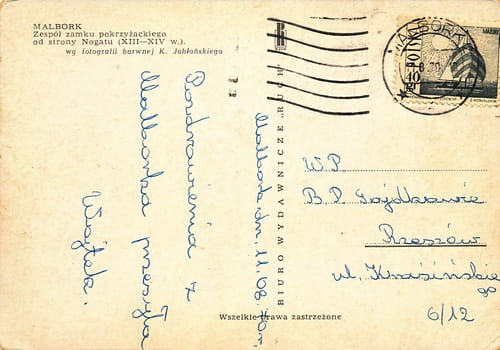 MALBORK
Zespół zamku pokrzyżackiego
od strony Nogatu (XIII—XIV w.).
wg fotografii barwnej K. Jabłońskiego
BIURO WYDAWNICZE „RUCH"
Malbork dn. 11.08.70r.
Pozdrowienia z
Malborka przesyła
Wojtek.
MALBORK
W.P.
B.P.
Rzeszów
ul.
6/12
Wszelkie prawa zastrzeżone